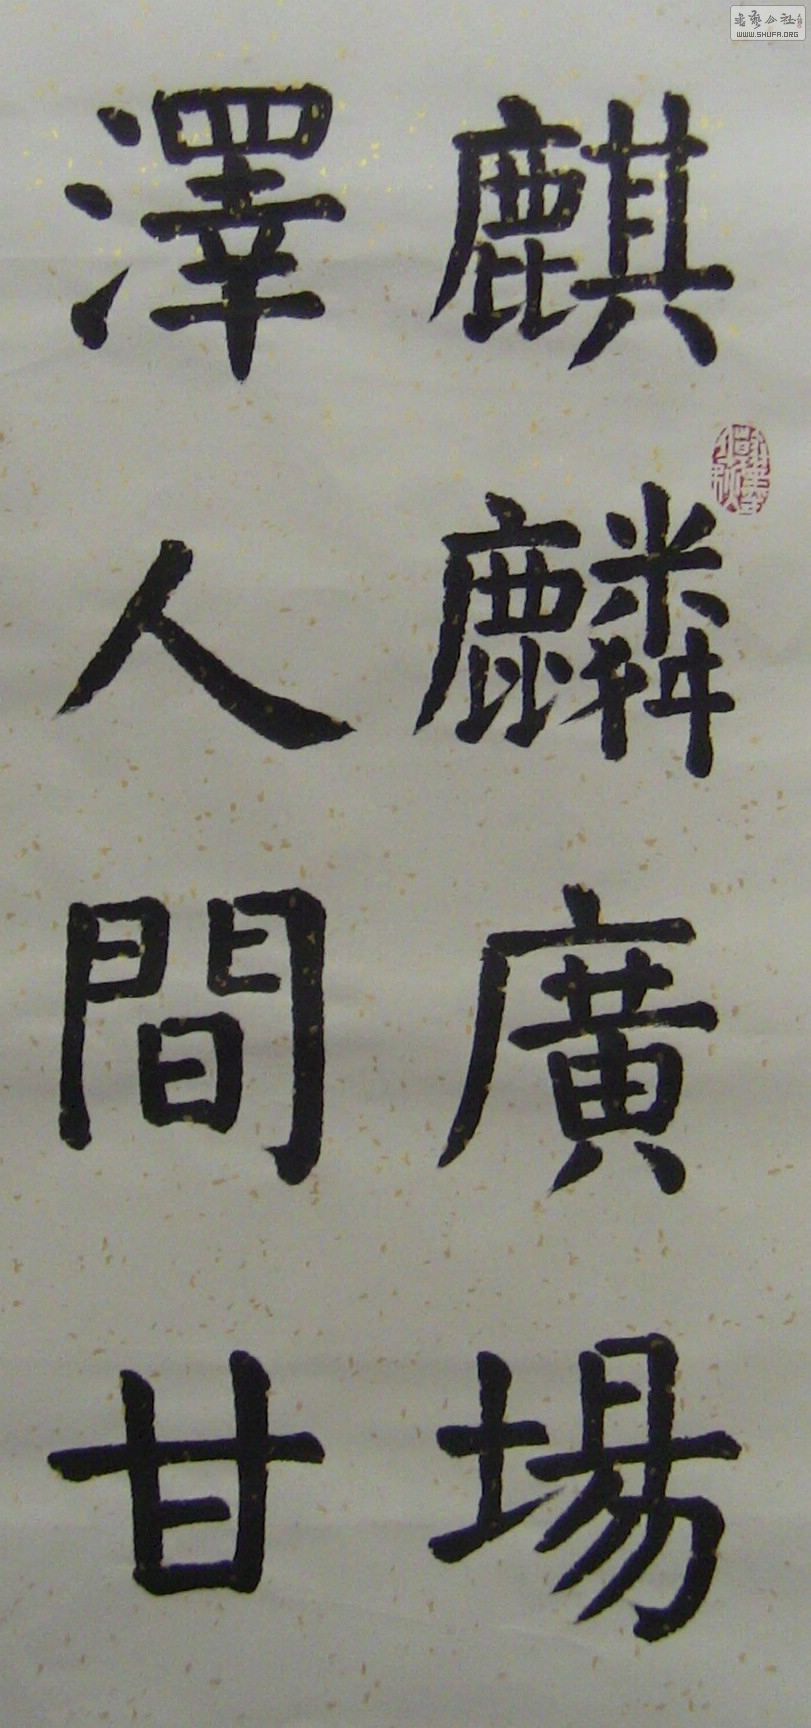 麒麟廣場
澤人間甘
书艺公社
WWW.SHUFA.ORG